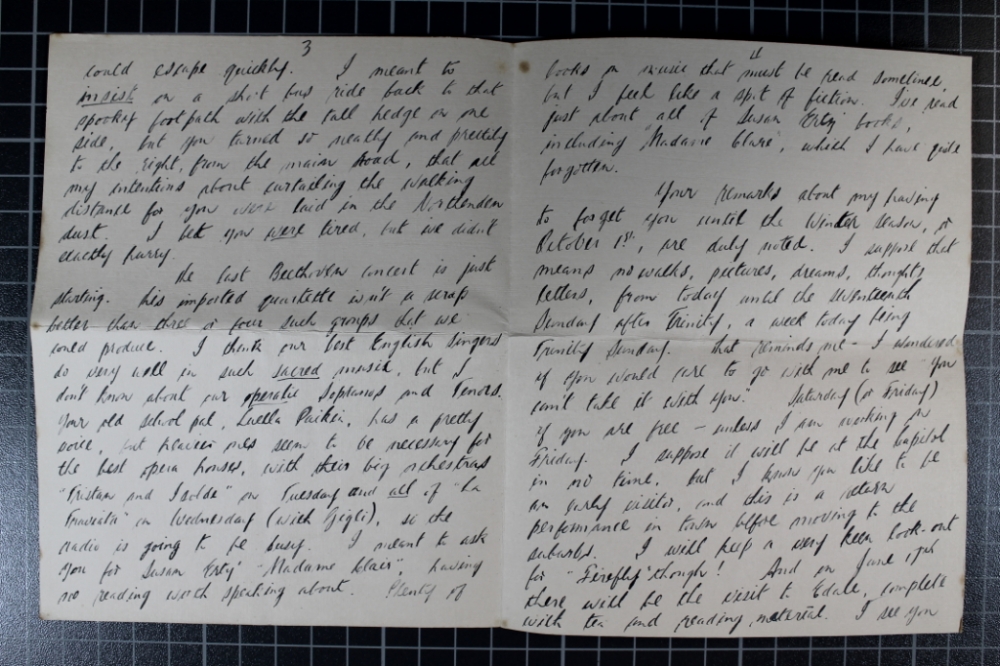 3
could escape quickly. I meant to
insist on a short bus ride back to that
spooky footpath with the tall hedge on one
side, but you turned so neatly and prettily
to the right, from the main road, that all
my intentions about curtailing the walking
distance for you were laid in the Northenden
dust. I bet you were tired, but we didn't
exactly hurry.
The last Beethoven concert is just
starting. This imported quartette isn't a scrap
better than three or four such groups that we
could produce. I think our best English singers
do very well in such sacred music, but I
don't know about our operatic Sopranos and Tenors.
Your old school pal, Luella Paikin, has a pretty
voice, but heavier ones seem to be necessary for
the best opera houses, with their big orchestras
"Tristan and Isolde" on Tuesday and all of "La
Traviata" on Wednesday (with Gigli), so the
radio is going to be busy. I meant to ask
you for Susan Ertz' "Madame Clair", having
no reading worth speaking about. Plenty of
4
books on music that must be read sometime,
but I feel like a spot of fiction. I've read
just about all of Susan Ertz books,
including "Madame Claire", which I have quite
forgotten.
Your remarks about my having
to forget you until the Winter season, or
October 1st, are duly noted. I suppose that
means no walks, pictures, dreams, thoughts
letters, from today until the seventeenth
Sunday after Trinity, a week today being
Trinity Sunday. That reminds me - I wondered
if you would care to go with me to see "You
can't take it with you". Saturday (or Friday)
if you are free - unless I am working on
Friday. I suppose it will be at the Capitol
in no time, but I know you like to be
an early visitor, and this is a return
performance in town before moving to the
suburbs. I will keep a very keen look-out
for "Firefly" though! And on June
there will be the visit to Edale, complete
with tea and reading material. I see you